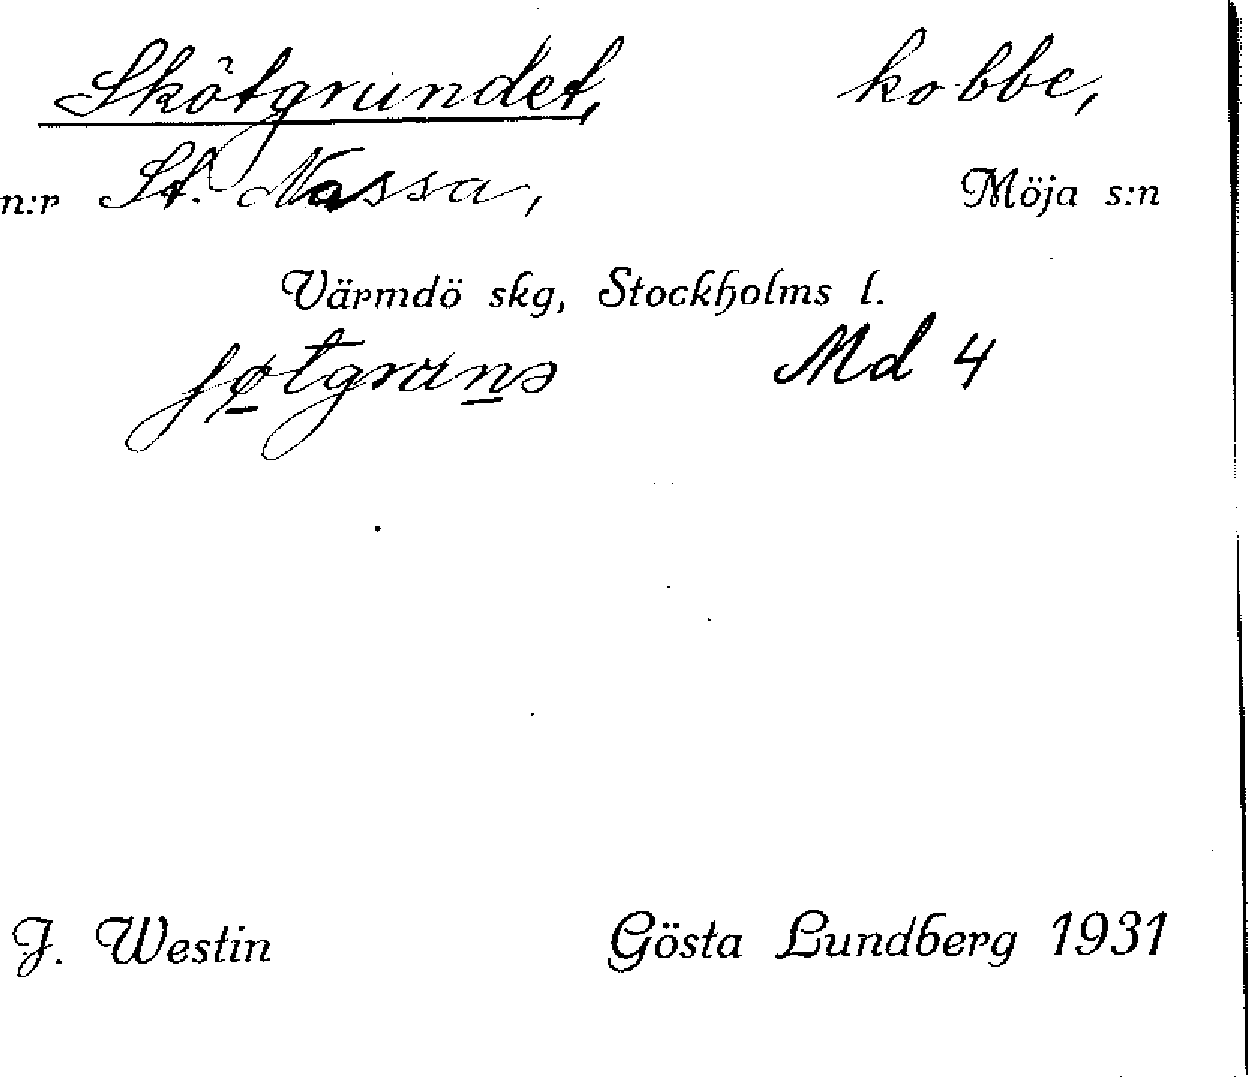 Skötgrundet, kobbe,
n:r St. Nassa, Möja s:n
Värmdö skg, Stockholms l.
Md 4
J. Westin Gösta Lundberg 1931